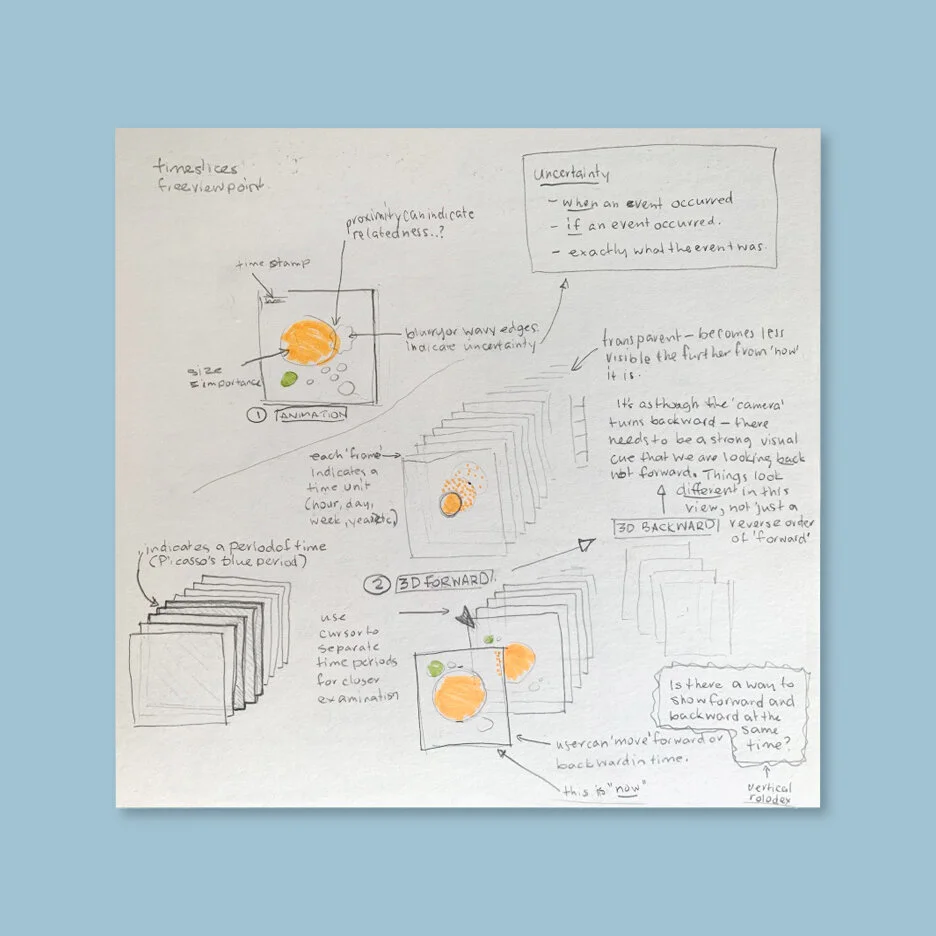 timeslices
freeviewpoint.
Uncertainty
- when an event occurred
- if an event occurred.
- exactly what the event was.
proximity can indicate
relatedness..?
time stamp
blurry or wavy edges
indicate uncertainty
size
= importance
① ANIMATION
transparent - becomes less
visible the further from 'now'
it is.
It's as though the 'camera'
turns backward - there
needs to be a strong visual
cue that we are looking back
not forward. Things look
different in this
view, not just a
reverse order
of 'forward'
3D BACKWARD
each 'frame'
indicates a
time unit
(hour, day,
week, year etc)
indicates a period of time
(Picasso's blue period)
② 3D FORWARD
use
cursor to
separate
time periods
for closer
examination
user can 'move' forward or
backward in time.
this is "now"
Is there a way to
show forward and
backward at the
same
time?
vertical
rolodex